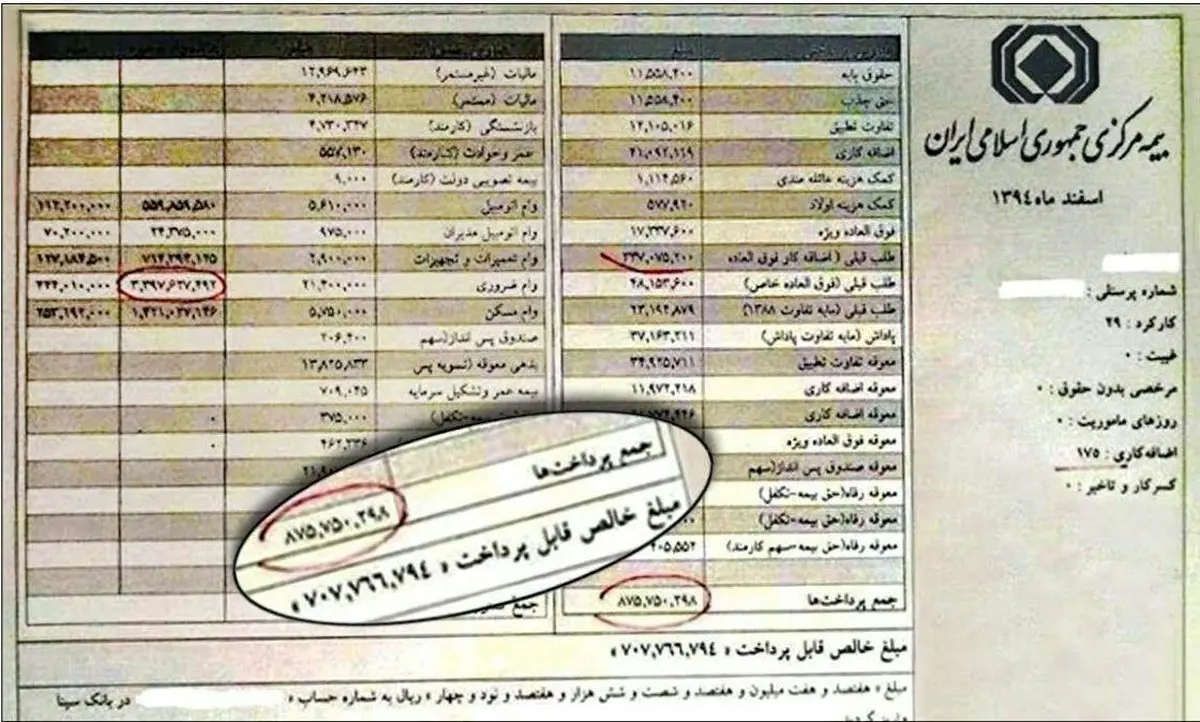 بیمه مرکزی جمهوری اسلامی ایران
اسفند ماه ۱۳۹۴
شماره پرسنلی :
کارکرد : ۲۹
غیبت : ۰
مرخصی بدون حقوق : ۰
روزهای ماموریت : ۰
اضافه‌کاری : ۱۷۵
کسر کار و تاخیر : ۰
مبلغ
حقوق پایه ۱۱,۵۵۸,۴۰۰
حق جذب ۱۱,۵۵۸,۴۰۰
تفاوت تطبیق ۱۲,۱۰۵,۰۱۶
اضافه کاری ۲۱,۰۹۲,۱۱۹
کمک هزینه عائله مندی ۱,۱۱۴,۵۶۰
کمک هزینه اولاد ۵۷۷,۹۲۰
فوق العاده ویژه ۱۷,۳۳۷,۶۰۰
طلب قبلی ( اضافه کار فوق العاده ۳۳۷,۰۷۵,۲۰۰
طلب قبلی (فوق العاده خاص) ۴۸,۱۵۳,۶۰۰
طلب قبلی (مابه تفاوت ۱۳۸۸) ۲۳,۱۹۲,۸۷۹
پاداش (مابه تفاوت پاداش) ۳۷,۱۶۳,۲۱۱
معوقه تفاوت تطبیق ۳۴,۹۲۵,۷۱۱
معوقه اضافه کاری ۱۱,۹۷۲,۲۱۸
معوقه اضافه کاری
معوقه فوق العاده ویژه
معوقه صندوق پس انداز(سهم
معوقه رفاه(حق بیمه-تکفل)
معوقه رفاه(حق بیمه-تکفل)
معوقه رفاه(حق بیمه-سهم کارمند)
جمع پرداخت‌ها ۸۷۵,۷۵۰,۲۹۸
مالیات (غیرمستمر) ۱۲,۹۶۹,۶۴۳
مالیات (مستمر) ۴,۲۱۸,۵۷۶
بازنشستگی (کارمند) ۴,۷۳۰,۳۴۷
عمر و حوادث (کارمند) ۵۵۷,۱۳۰
بیمه تصویبی دولت (کارمند) ۹,۰۰۰
وام اتومبیل ۵,۶۱۰,۰۰۰ ۵۵۹,۸۵۹,۵۸۰ ۱۹۲,۲۰۰,۰۰۰
وام اتومبیل مدیران ۹۷۵,۰۰۰ ۲۴,۳۷۵,۰۰۰ ۷۰,۲۰۰,۰۰۰
وام تعمیرات و تجهیزات ۲,۹۰۰,۰۰۰ ۷۱۲,۲۹۳,۱۲۵ ۱۲۷,۱۸۴,۵۰۰
وام ضروری ۲۱,۴۰۰,۰۰۰ ۳,۳۹۷,۶۲۷,۴۹۲ ۲۴۴,۰۱۰,۰۰۰
وام مسکن ۵,۷۵۰,۰۰۰ ۱,۴۲۱,۰۲۷,۱۴۶ ۲۵۳,۱۹۲,۰۰۰
صندوق پس انداز(سهم ۲۰۶,۴۰۰
بدهی معوقه (تسویه پس ۱۳,۸۲۵,۸۳۳
بیمه عمر وتشکیل سرمایه ۷۰۹,۰۴۵
۳۷۵,۰۰۰ ۰
۴۶۲,۳۳۶ ۰
جمع پرداخت‌ها
۸۷۵,۷۵۰,۲۹۸
مبلغ خالص قابل پرداخت « ۷۰۷,۷۶۶,۷۹۴ »
مبلغ خالص قابل پرداخت « ۷۰۷,۷۶۶,۷۹۴ »
مبلغ « هفتصد و هفت میلیون و هفتصد و شصت و شش هزار و هفتصد و نود و چهار » ریال به شماره حساب « در بانک سینا